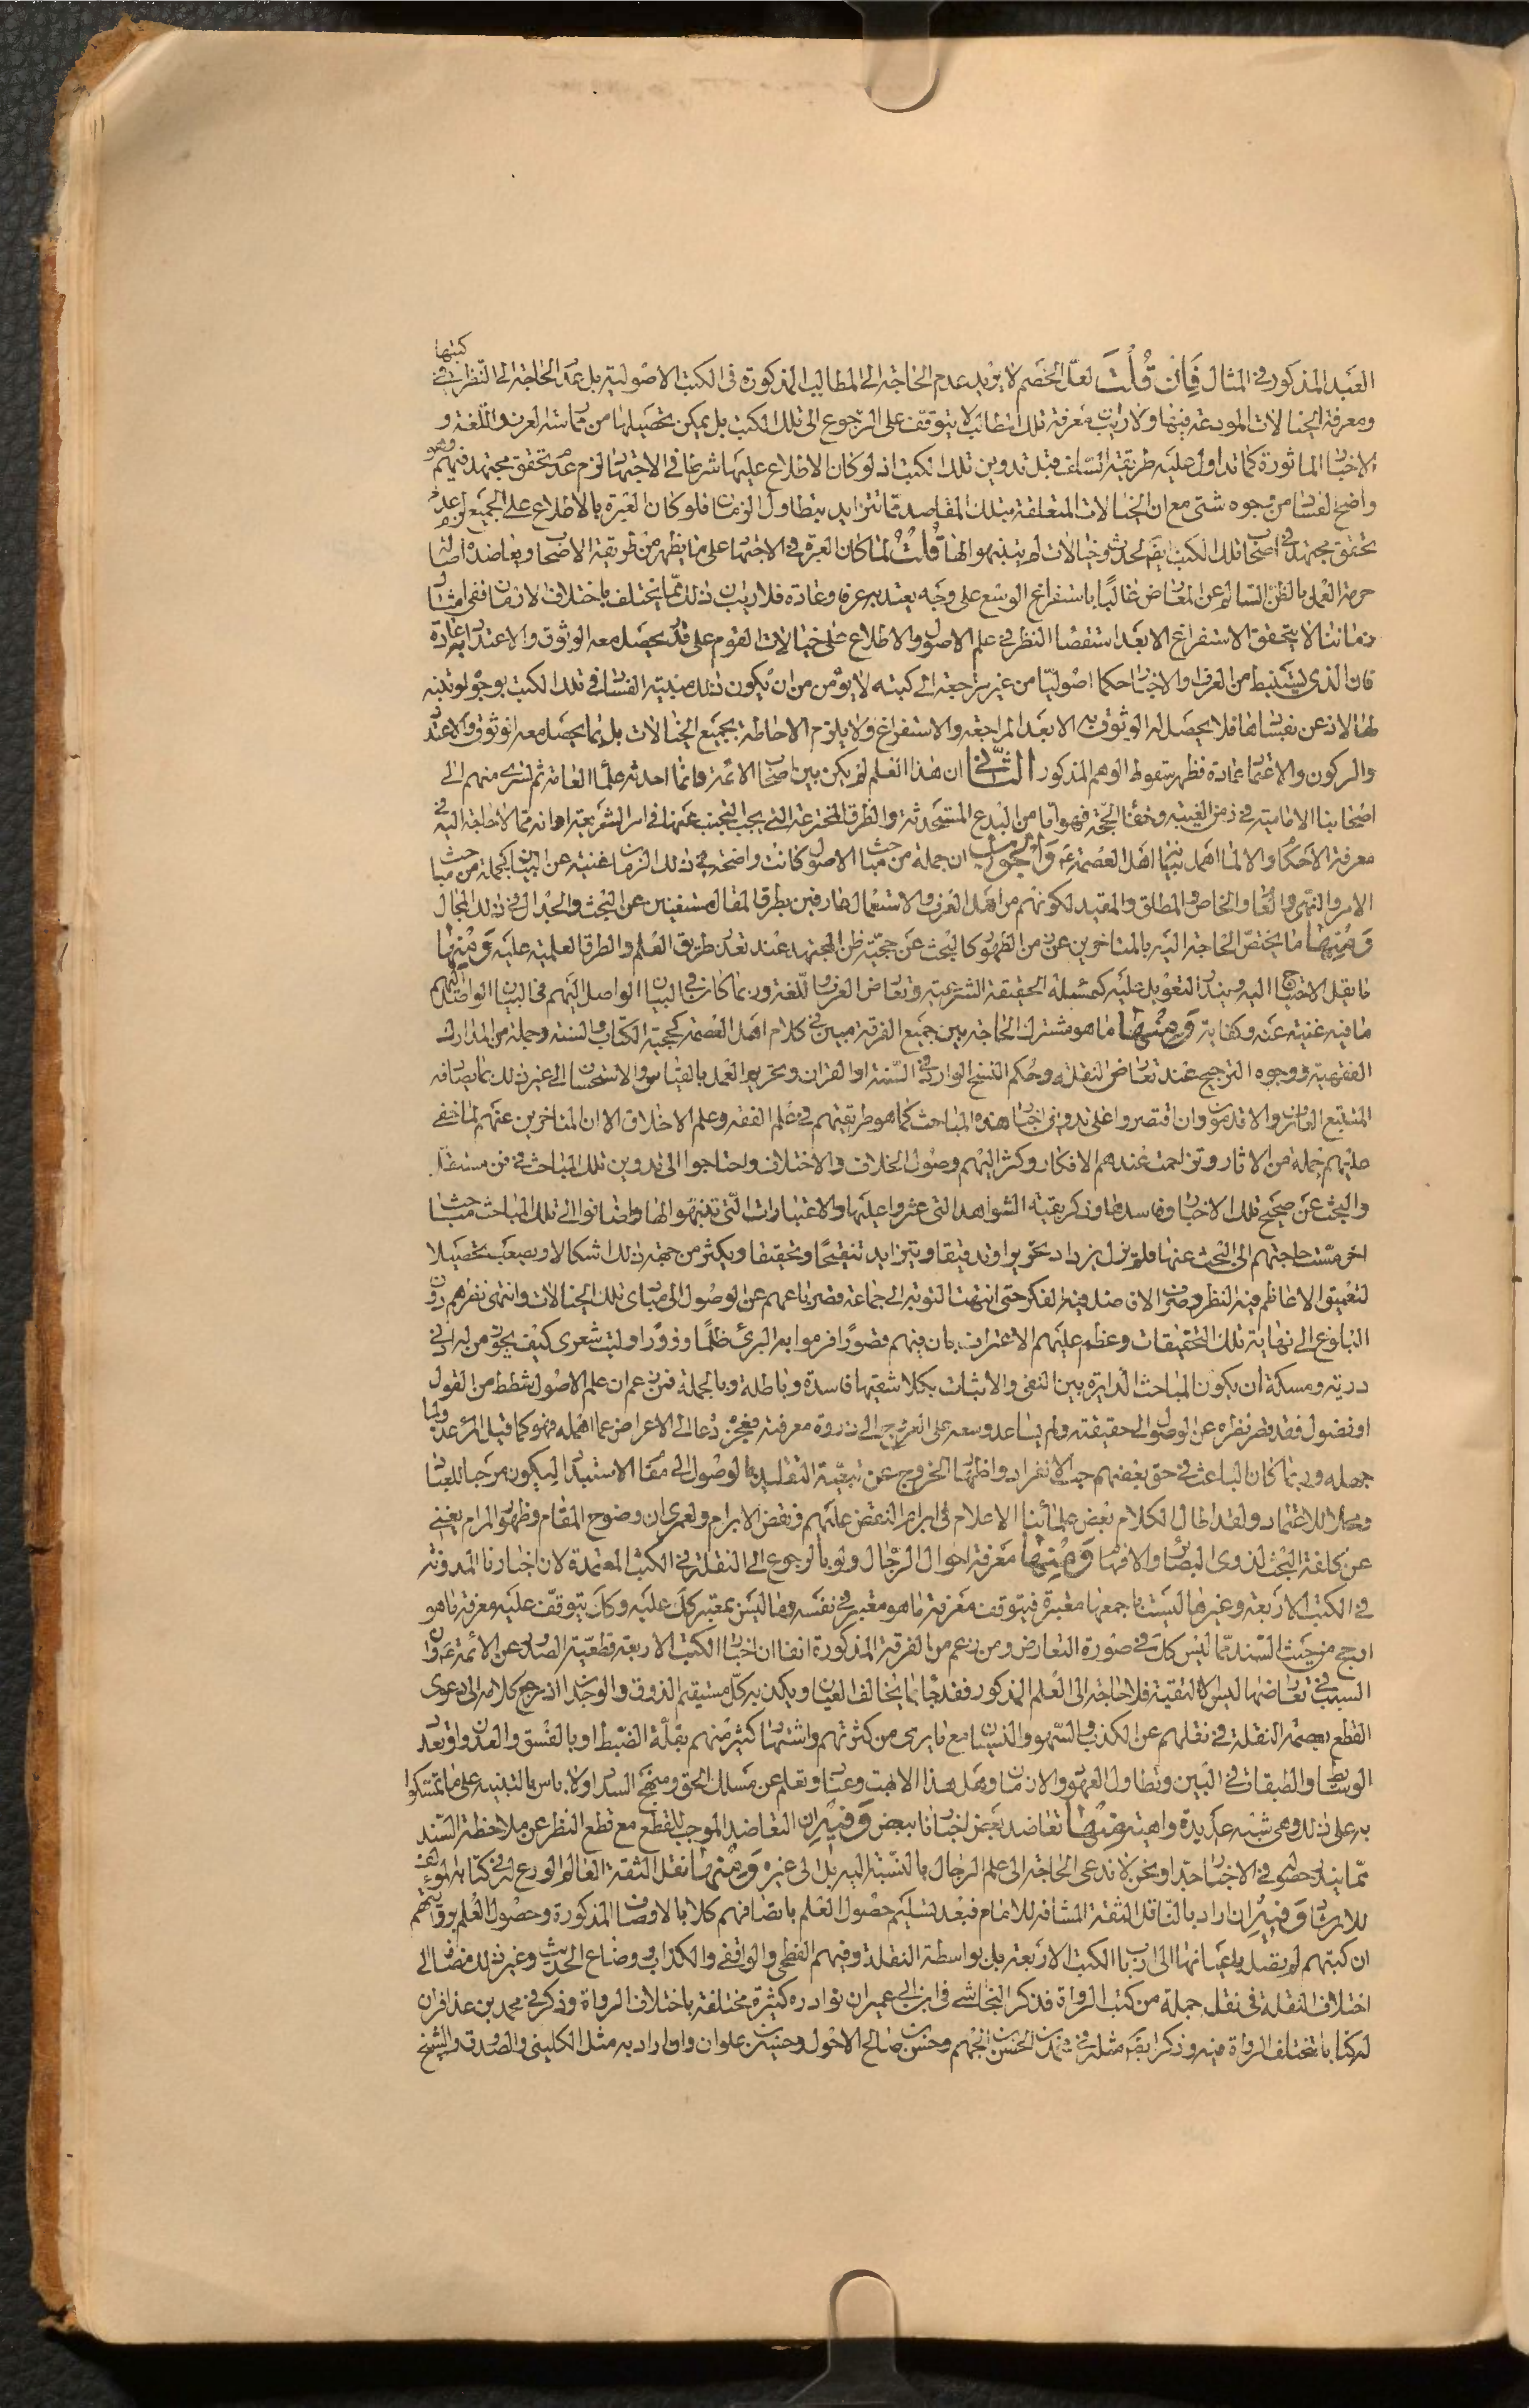 كتبها
العبد المذكور في المثال فان قلت لعل الخصم لا يريد عدم الحاجة الى المطالب المذكورة في الكتب الاصولية بل عدم الحاجة الى النظر في
ومعرفة الخيالات المودعة فيها ولا ريب ان معرفة تلك المطالب لا يتوقف على الرجوع الى تلك الكتب بل يمكن تحصيلها من ممارسة العرف واللغة و
الاخبار الماثورة كما تداول عليه طريقة السلف قبل تدوين تلك الكتب اذ لو كان الاطلاع عليها شرطا في الاجتهاد لزم عدم تحقق مجتهد فيهم وهو
واضح الفساد من وجوه شتى مع ان الخيالات المتعلقة بتلك المقاصد مما تتزايد بتطاول الزمان فلو كان العبرة بالاطلاع على الجميع لزم عدم
تحقق مجتهد في اصحاب تلك الكتب ايضا لحدوث خيالات لم يتنبهوا لها قلت لما كان العبرة في الاجتهاد على ما يظهر من طريقة الاصحاب ويعاضده اصالة
حرمة العمل بالظن السالم عن المعارض غالبا باستفراغ الوسع على وجه يعتد به عرفا وعادة فلا ريب ان ذلك مما يختلف باختلاف الازمان ففي امثال
زماننا لا يتحقق الاستفراغ الا بعد استقصاء النظر في علم الاصول والاطلاع على خيالات القوم على قدر يحصل معه الوثوق والاعتداد به عادة
فان الذي يستنبط من العرف والاخبار حكما اصوليا من غير مراجعة الى كتبه لا يؤمن من ان يكون ذلك مبنيه الفساد في تلك الكتب بوجوه لو تنبه
لها لاذعن بفسادها فلا يحصل له الوثوق به الا بعد المراجعة والاستفراغ ولا يلزم الاحاطة بجميع الخيالات بل بما يحصل معه الوثوق والاعتداد
والركون والاعتماد عادة فظهر سقوط الوهم المذكور الثاني ان هذا العلم لم يكن بين اصحاب الائمة وانما احدثه علماء العامة ثم لسرى منهم الى
اصحابنا الامامية في زمن الغيبة وخفاء الحجة فهو اما من البدع المستحدثة والطرق المخترعة التي يجب التجنب عنها في امر الشريعة او انه مما لا حاجة اليه في
معرفة الاحكام والا لما اهمل بيانها اهل العصمة ع والجواب ان جملة من مباحث الاصول كانت واضحة في ذلك الزمان غنية عن البيان كجملة من مباحث
الامر والنهي والعام والخاص والمطلق والمقيد لكونهم من اهل العرف والاستعمال عارفين بطرق المقال مستغنين عن البحث والجدال في ذلك المجال
ومنها ما يختص الحاجة اليه بالمتاخرين عن زمن الظهور كالبحث عن حجية ظن المجتهد عند تعذر طريق العلم والطرق العلمية عليه ومنها
ما يقل الاحتياج اليه ويندر التعويل عليه كمسئلة الحقيقة الشرعية وتعارض العرف واللغة وربما كان في البيان الواصل اليهم في البيان الواصل اليهم
ما فيه غنية عنه وكفاية ومنها ما هو مشترك الحاجة بين جميع الفرقة مبين في كلام اهل العصمة كحجية الكتاب والسنة وجملة من المدارك
الفقهية ووجوه الترجيح عند تعارض النقلة وحكم النسخ الوارد في السنة او القران وتحريم العمل بالقياس والاستحسان الى غير ذلك مما يصادفه
المتتبع الماهر والاقدمون وان اقتصروا على تدوين اخبار هذه المباحث كما هو طريقتهم في علم الفقه وعلم الاخلاق الا ان المتاخرين عنهم لما خفي
عليهم جملة من الاثار وتزاحمت عندهم الافكار وكثر اليهم وصول الخلاف والاختلاف واحتاجوا الى تدوين تلك المباحث في فن مستقل
والبحث عن صحيح تلك الاخبار وفاسدها وذكر بقية الشواهد التي عثروا عليها والاعتبارات التي تنبهوا لها واضافوا الى تلك المباحث مباحث
اخر مست حاجتهم الى البحث عنها فلم يزل يزداد تحريرا وتدقيقا ويتزايد تنقيحا وتحقيقا ويكثر من جهة ذلك اشكالا ويصعب تحصيلا
لتعميق الاعاظم فيه النظر وصرف الافاضل فيه الفكر حتى انتهت النوبة الى جماعة قصر باعهم عن الوصول الى مبادي تلك الخيالات وانتهى نظرهم دون
البلوغ الى نهاية تلك التحقيقات وعظم عليهم الاعتراف بان فيهم قصورا فرموا به البرئ ظلما وزورا وليت شعري كيف يجوز من له ادنى
درية ومسكة ان يكون المباحث الدايرة بين النفي والاثبات بكلا شقيها فاسدة وباطلة وبالجملة فمن زعم ان علم الاصول شطط من القول
او فضول فقد قصر نظره عن الوصول الى حقيقته ولم يساعد وسعه على العروج الى ذروة معرفته فعجزه دعا الى الاعراض عما اهمله فهو كما قيل المرء عدو لما
جهله وربما كان الباعث في حق بعضهم حب الانفراد واظهار الخروج عن تبعية التقليد والوصول الى مقام الاستبداد ليكون مرجعا للعباد
ومحلا للاعتماد ولقد اطال الكلام بعض علمائنا الاعلام في ابرام النقض عليهم ونقض الابرام ولعمري ان وضوح المقام وظهور المرام يغني
عن كلفة البحث لذوي البصائر والافهام ومنها معرفة احوال الرجال ولو بالرجوع الى النقلة في الكتب المعتمدة لان اخبارنا المدونة
في الكتب الاربعة وغيرها ليست باجمعها معتبرة فيتوقف معرفة ما هو معتبر في نفسه وما ليس بمعتبر كك عليه وكذا يتوقف عليه معرفة ما هو
ارجح من حيث السند مما ليس كك في صورة التعارض ومن زعم من الفرقة المذكورة انفا ان اخبار الكتب الاربعة قطعية الصدور عن الائمة ع وان
السبب في تعارضها ليس الا التقية فلا حاجة الى العلم المذكور فقد جاء بما يخالف العيان ويكذبه كل مستقيم الذوق والوجدان اذ مرجع كلامه الى دعوى
القطع بعصمة النقلة في نقلهم عن الكذب والسهو والنسيان مع ما يرى من كثرتهم واشتهار كثير منهم بقلة الضبط او بالفسق والعدوان وتعدد
الوسايط والطبقات في البين وتطاول العهود والازمان وهل هذا الا بهت وعناد وتعلم عن مسلك الحق ومنهج السداد ولا باس بالتنبيه على ما تمسكوا
به على ذلك وهي شبه عديدة واهية منها تعاضد بعض اخبارنا ببعض وفيه ان التعاضد الموجب للقطع مع قطع النظر عن ملاحظة السند
مما يندر حصوله في الاخبار جدا ونحن لا ندعي الحاجة الى علم الرجال بالنسبة اليه بل الى غيره ومنها نقل الثقة العالم الورع له في كتابه
للارشاد وفيه ان اراد بالناقل الثقة المشافه للامام فبعد تسليم حصول العلم باتصافهم كلا بالاوصاف المذكورة وحصول العلم بوثاقتهم
ان كتبهم لم يصل باعيانها الى ارباب الكتب الاربعة بل بواسطة النقلة وفيهم الفطحي والواقفي والكذاب ووضاع الحديث وغير ذلك مضافا الى
اختلاف النقلة في نقل جملة من كتب الرواة فذكر النجاشي في ابن ابي عمير ان نوادره كثيرة مختلفة باختلاف الرواة وذكر في محمد بن عذافر ان
له كتابا تختلف الرواة فيه وذكر ايضا مثله في الحسن بن الجهم وحسن بن صالح الاحول وحسين بن علوان وان اراد به مثل الكليني والصدوق والشيخ